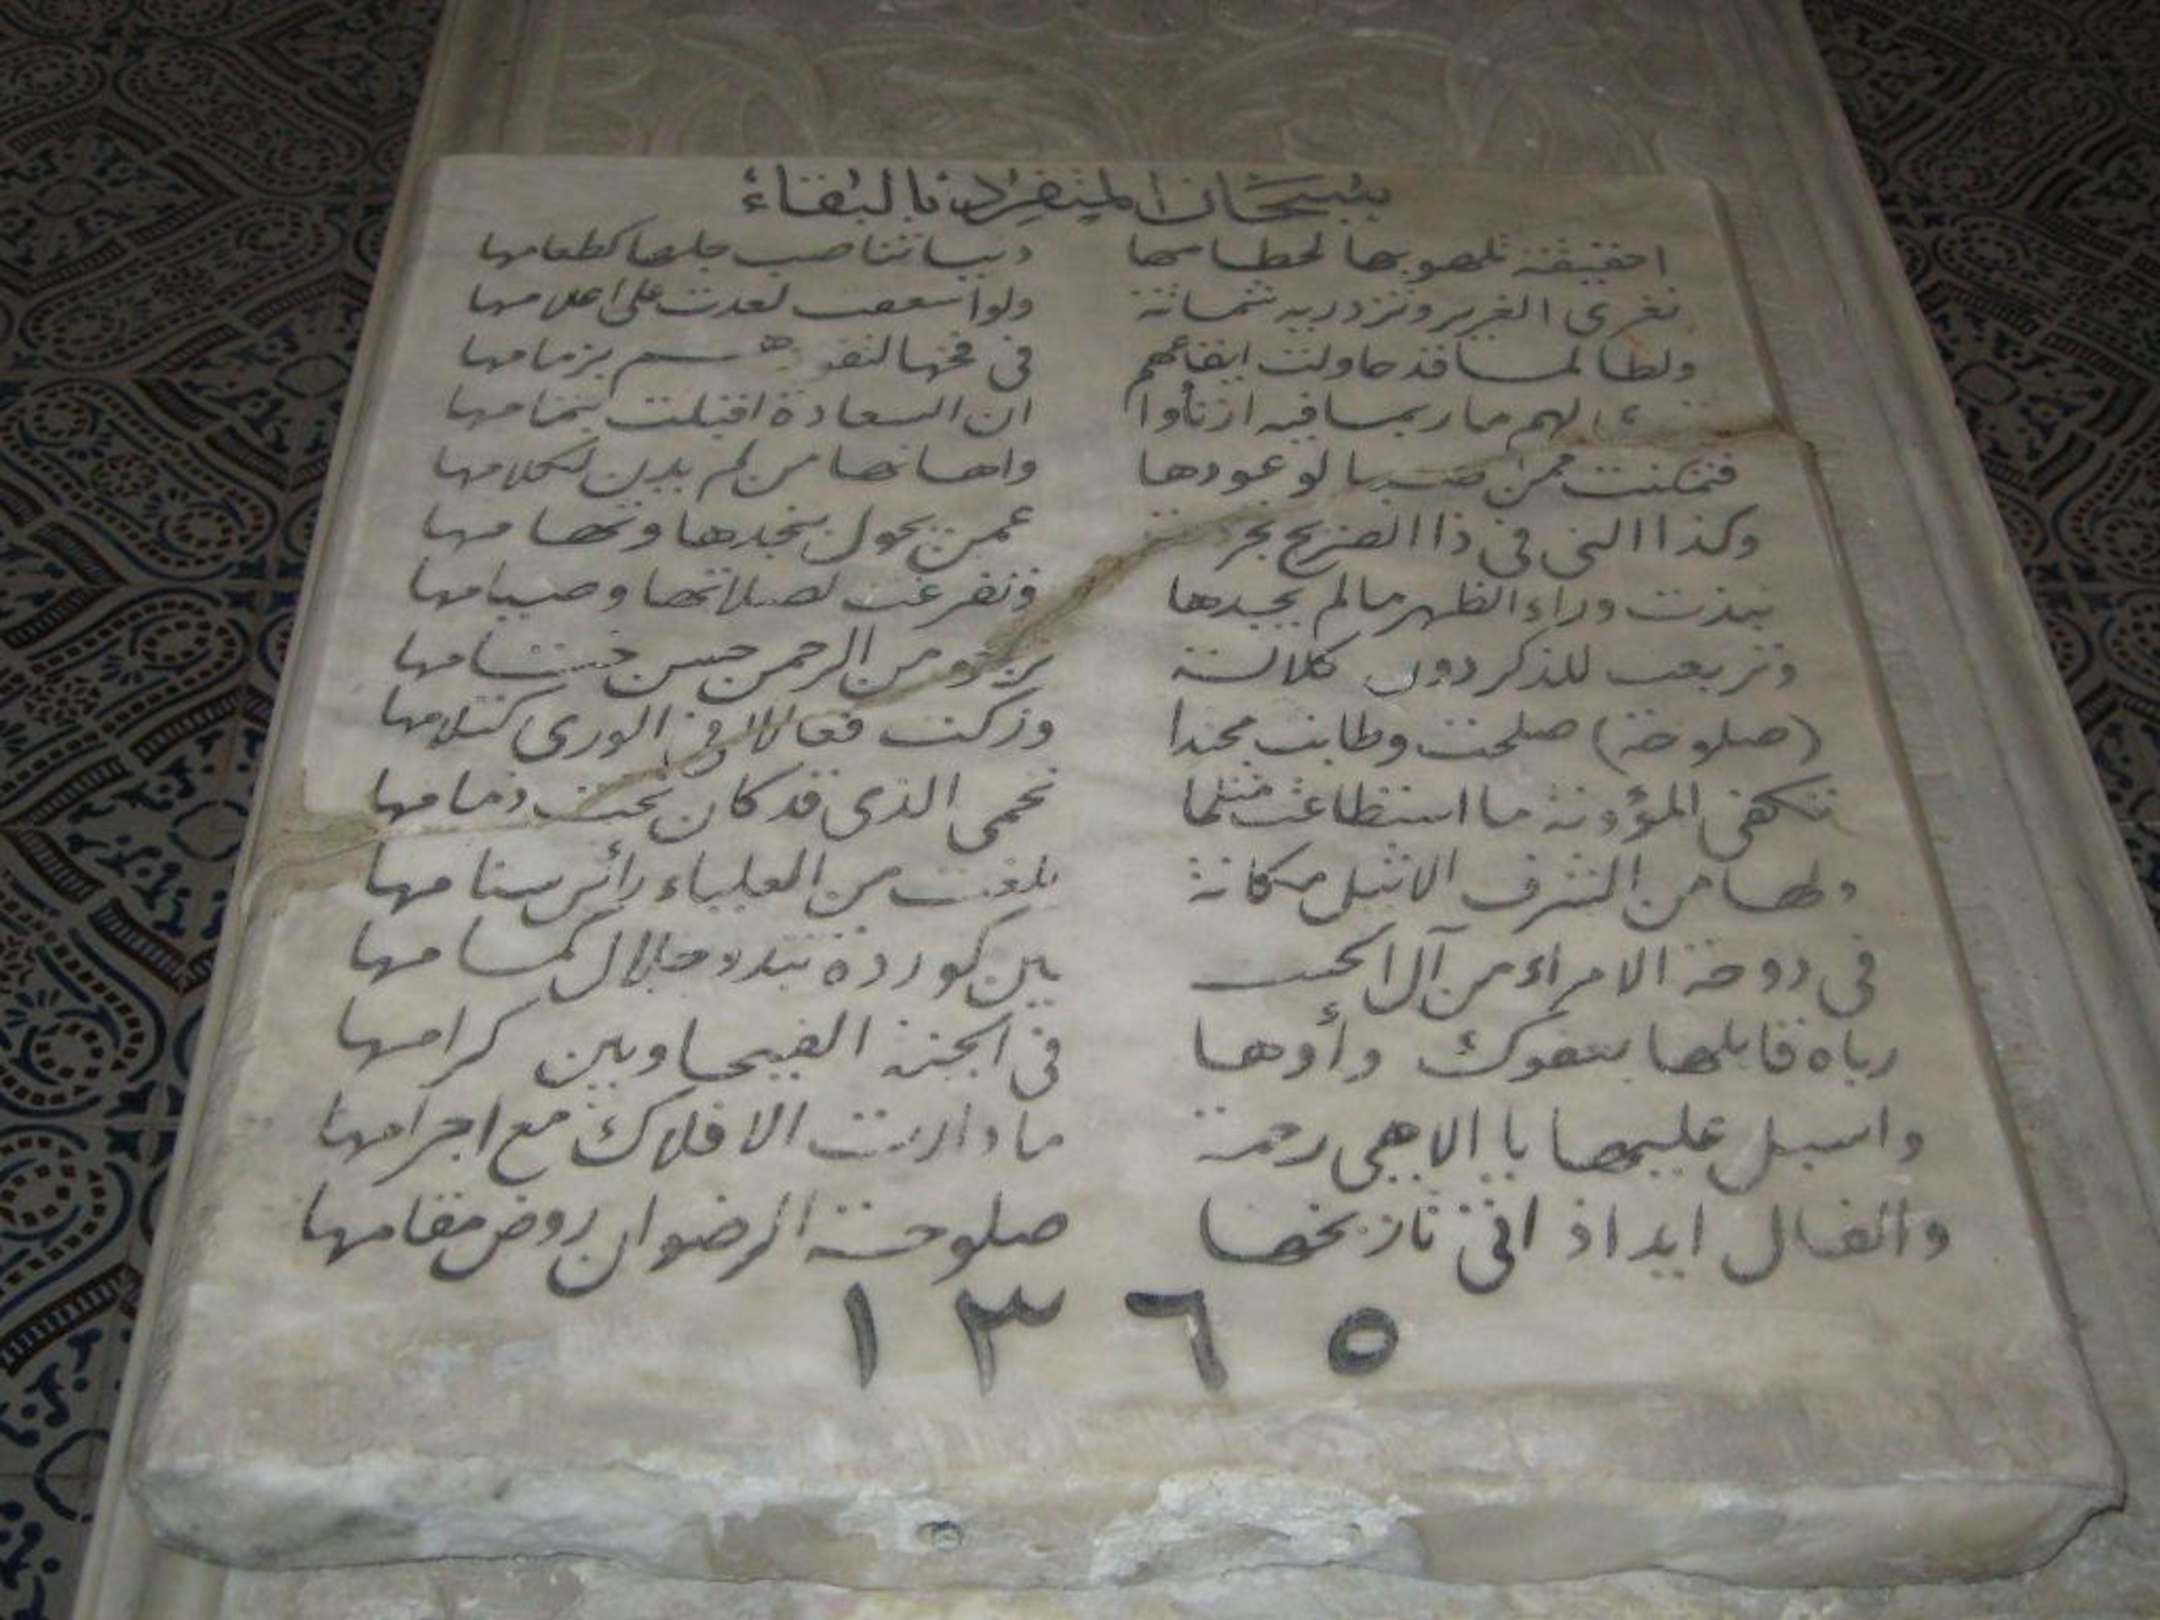 سبحان المنفرد بالبقاء
احقيقة تلهو بها لحطامها دنيا تناصب جلها كطعامها
تغري الغرير وتزدريه شماتة ولو اسعفت لعدت على اعلامها
ولطالما قد حاولت ايقاعهم في فخها بزمامها
الهم ما ربما فيه ارتأوا ان السعادة اقبلت بتمامها
فتمكنت ممن بالوعودها واهانها من لم يدن لكلامها
وكذا التي في ذا الضريح عمن يحول بنجدها وتهامها
نبذت وراء الظهر مالم يجدها وتفرغت لصلاتها وصيامها
وتربعت للذكر دون كلالة ترجو من الرحمن حسن ختامها
(صلوحة) صلحت وطابت محتدا وزكت فعالا في الورى كتلامها
تكفي المؤونة ما استطاعت مثلما تحمي الذي قد كان تحت ذمامها
ولها من الشرف الاثيل مكانة بلغت من العلياء رأس سنامها
في دوحة الامراء من آل الحسين كوردة تبدو خلال كمامها
رباه قابلها بعفوك وأوها في الجنة الفيحا وبين كرامها
واسبل عليها يا الاهي رحمة ما دارت الافلاك مع اجرامها
والفال ايد اذ اتى تاريخها صلوحة الرضوان روض مقامها
١٣٦٥